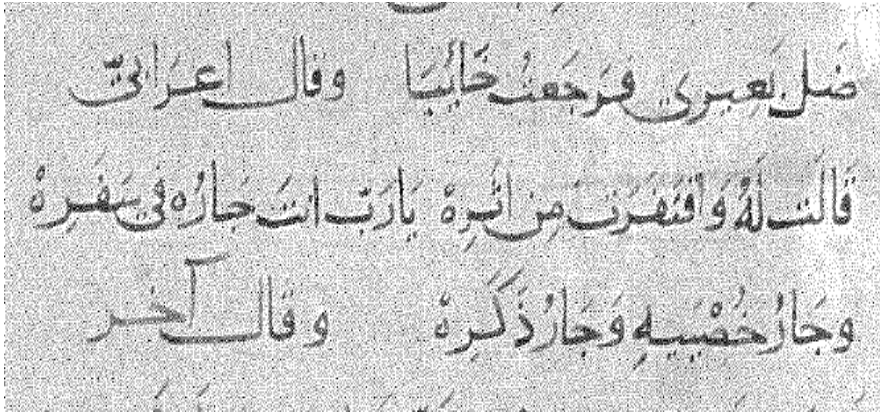 ضَل بَعِيري فَرَجَعتُ خَائِبَا وقال اعرَابيّ
قَالَت لَهُ وَاقتَفَرَت مِن اثَرِهْ يَارَبّ انتَ جَارُه في سَفَرِهْ
وجَارُ خُصْيَيهِ وَجَارُ ذَكَرِهْ وقال آخر